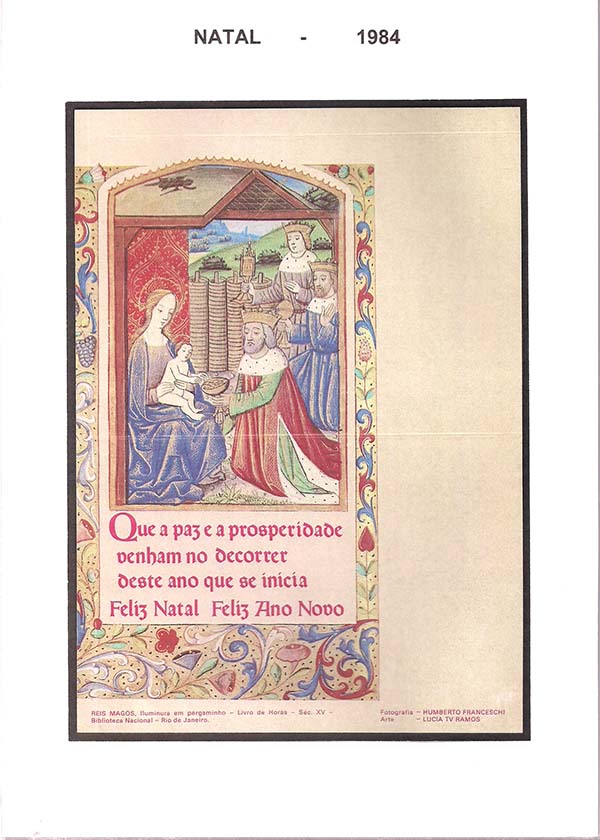 NATAL - 1984
Que a paz e a prosperidade
venham no decorrer
deste ano que se inicia
Feliz Natal Feliz Ano Novo
REIS MAGOS, Iluminura em pergaminho – Livro de Horas – Séc. XV –
Biblioteca Nacional – Rio de Janeiro.
Fotografia – HUMBERTO FRANCESCHI
Arte – LUCIA TV RAMOS